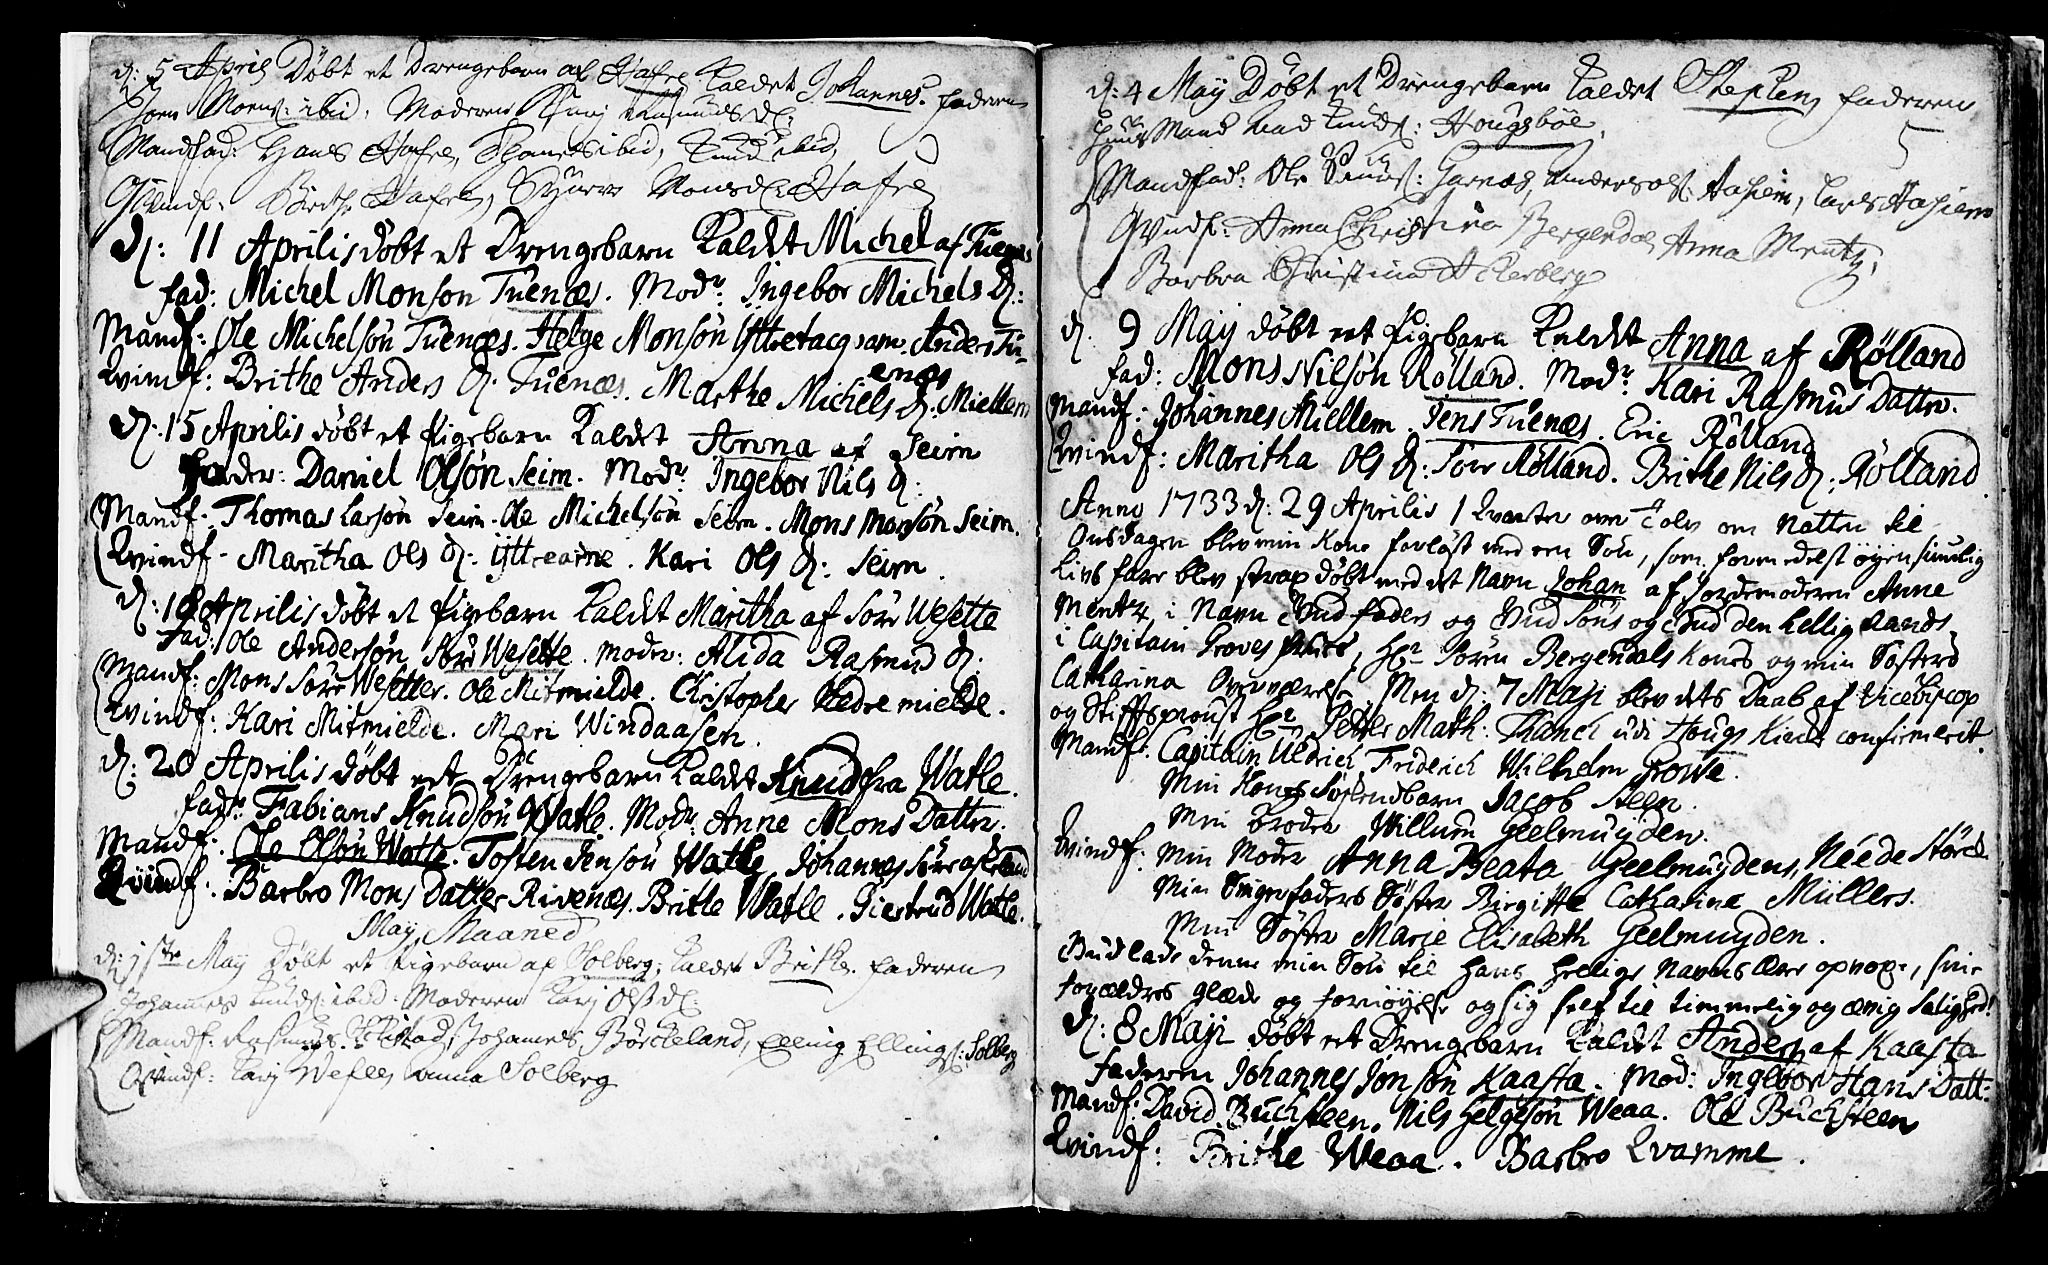 d: 5 April Døbt et Drengebarn af Hafre kaldet Johannes. faderen
Joen Moens: ibid. Moderen Kari Rasmusd:
Mandfad: Hans Hafre, ibid, Knud ibid,
Qvindf: Brithe Hafre, Monsd: Hafre
d: 11 Aprilis døbt et Drengebarn kaldet Michel af Tuenæs
fad: Michel Monson Tuenæs. Modr: Ingebor Michels D:
Mandf: Ole Michelsøn Tuenæs. Helge Monsøn Ythetacqsam. Anders Tu-
enæs
Qvindf: Brithe Anders D. Tuenæs. Marthe Michels D: Miellem
d: 15 Aprilis døbt et Pigebarn kaldet Anna af Seim
Fader: Daniel Olsøn Seim. Modr: Ingebor Nils D:
Mandf: Thomas Larsøn Seim. Ole Michelsøn Seim. Mons Monsøn Seim.
Qvindf: Maritha Ols D: Yttrearne. Kari Ols D: Seim.
d: 19 Aprilis døbt et Pigebarn kaldet Maritha af Søre Wesette
fad: Ole Andersøn Søre Wesette. Moder: Alida Rasmus D:
Mandf: Mons Søre Wesette. Ole Mitmielde. Christopher Nedre mielde.
Qvindf: Kari Mitmielde. Mari Windaasen.
d: 20 Aprilis døbt et Drengebarn kaldet Knud fra Watle.
fadr: Fabians Knudsøn Watle. Modr: Anne Mons Datter.
Mandf: Ole Olsøn Watle. Tosten Jensøn Watle. Johannes Søre
Qvindf: Barbro Mons Datter Rivenæs. Brithe Watle. Giertrud Watle.
May Maaned
d: 1ste May Døbt et Pigebarn af Solberg, kaldet Brithe. faderen
Johannes Knuds: ibid. Moderen Kari Olsd:
Mandf: Rasmus Johannes Børcheland, Elling Ellings: Solberg
Qvindf: Kari Anna Solberg
d: 4 May Døbt et Drengebarn kaldet Stephen, faderen
5
Huus Mand Knuds: Hougsbøe.
Mandfad: Ole Garnæs, Anders Ols: Aasheim, Lars Aasheim
Qvindf: Anna Christina Bergendal, Anna Mentz,
Barbra Christina Akerberg
d. 9 May døbt et Pigebarn kaldet Anna af Rølland
fad: Mons Nilsøn Rølland. Modr: Kari Rasmus Datter.
Mandf: Johannes Miellem. Jens Tuenæs. Eric Rølland
Qvindf: Maritha Ols D: Rølland. Brithe Nils D: Rølland.
Anno 1733 d: 29 Aprilis 1 Qvarter over Tolv om Natten til
Onsdagen blev min Kone forløst med en Søn, som formedelst øyensiunlig
Livs fare blev strax døbt med et Navn Johan af Jordemoderen Anne
Mentz, i Navn Gud faders og Gud Søns og Gud den hellig Aands
i Capitain Groves Frues, Hr Søren Bergendals Kones og min Søsters
Catharina Overværelse. Men d: 7 Maji blev dets Daab af Vicebiscop
og Stiftsproust Hr Petter Math: Thanch udi Hougs Kirke confirmerit.
Mandf: Capitain Uldrich Friderich Wilhelm Growe.
Min Kones Søskendbarn Jacob Steen.
Min Broder Willum Geelmuyden.
Qvindf: Min Moder Anna Beata Geelmuydens, Née de Størch
Min Svigerfaders Søster Birgitte Catharine Müllers.
Min Søster Marie Elisabeth Geelmuyden.
Gud lade denne min Søn til Hans hellige Navns ære opvoxe, sine
forældres glæde og fornøyelse og sig self til timmelig og ævig Salighed!
d: 8 Maji døbt et Drengebarn kaldet Anders af Kaasta
Faderen Johannes Jonsøn Kaasta. Mod: Ingebor Hans Datt:
Mandf: David Buchsteen. Nils Helgesøn Weaa. Ole Buchsteen
Qvindf: Brithe Weaa. Barbro Qvamme.